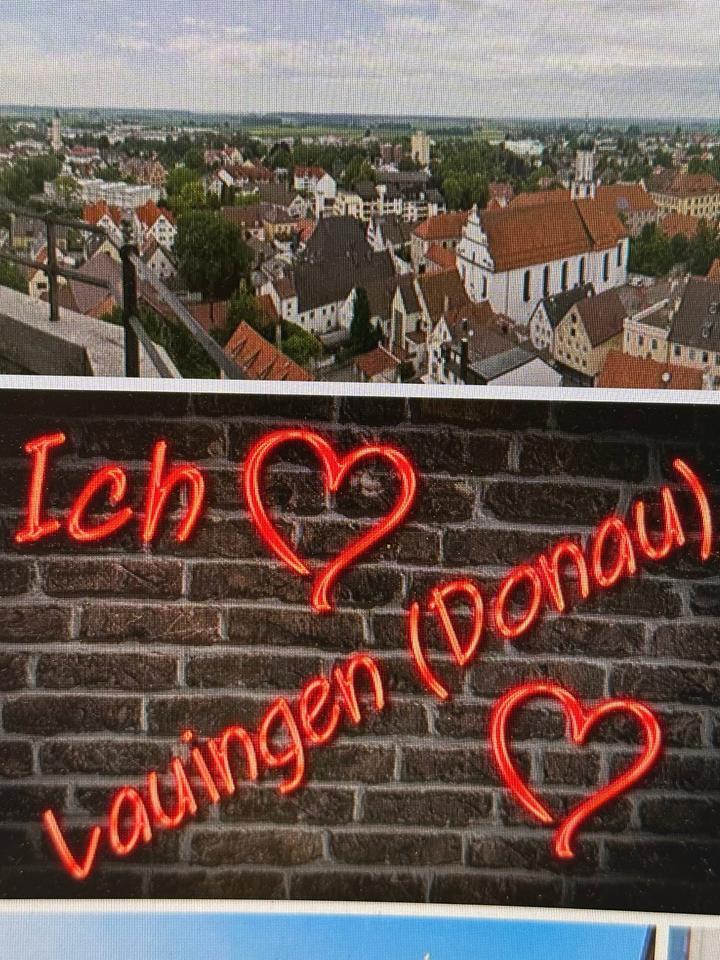 Ich
Lauingen (Donau)